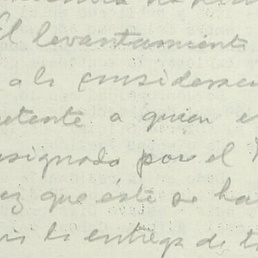 El levantamiento
a la consideraci
petente a quien e
esignado por el
ez que éste se ha
la entrega de t